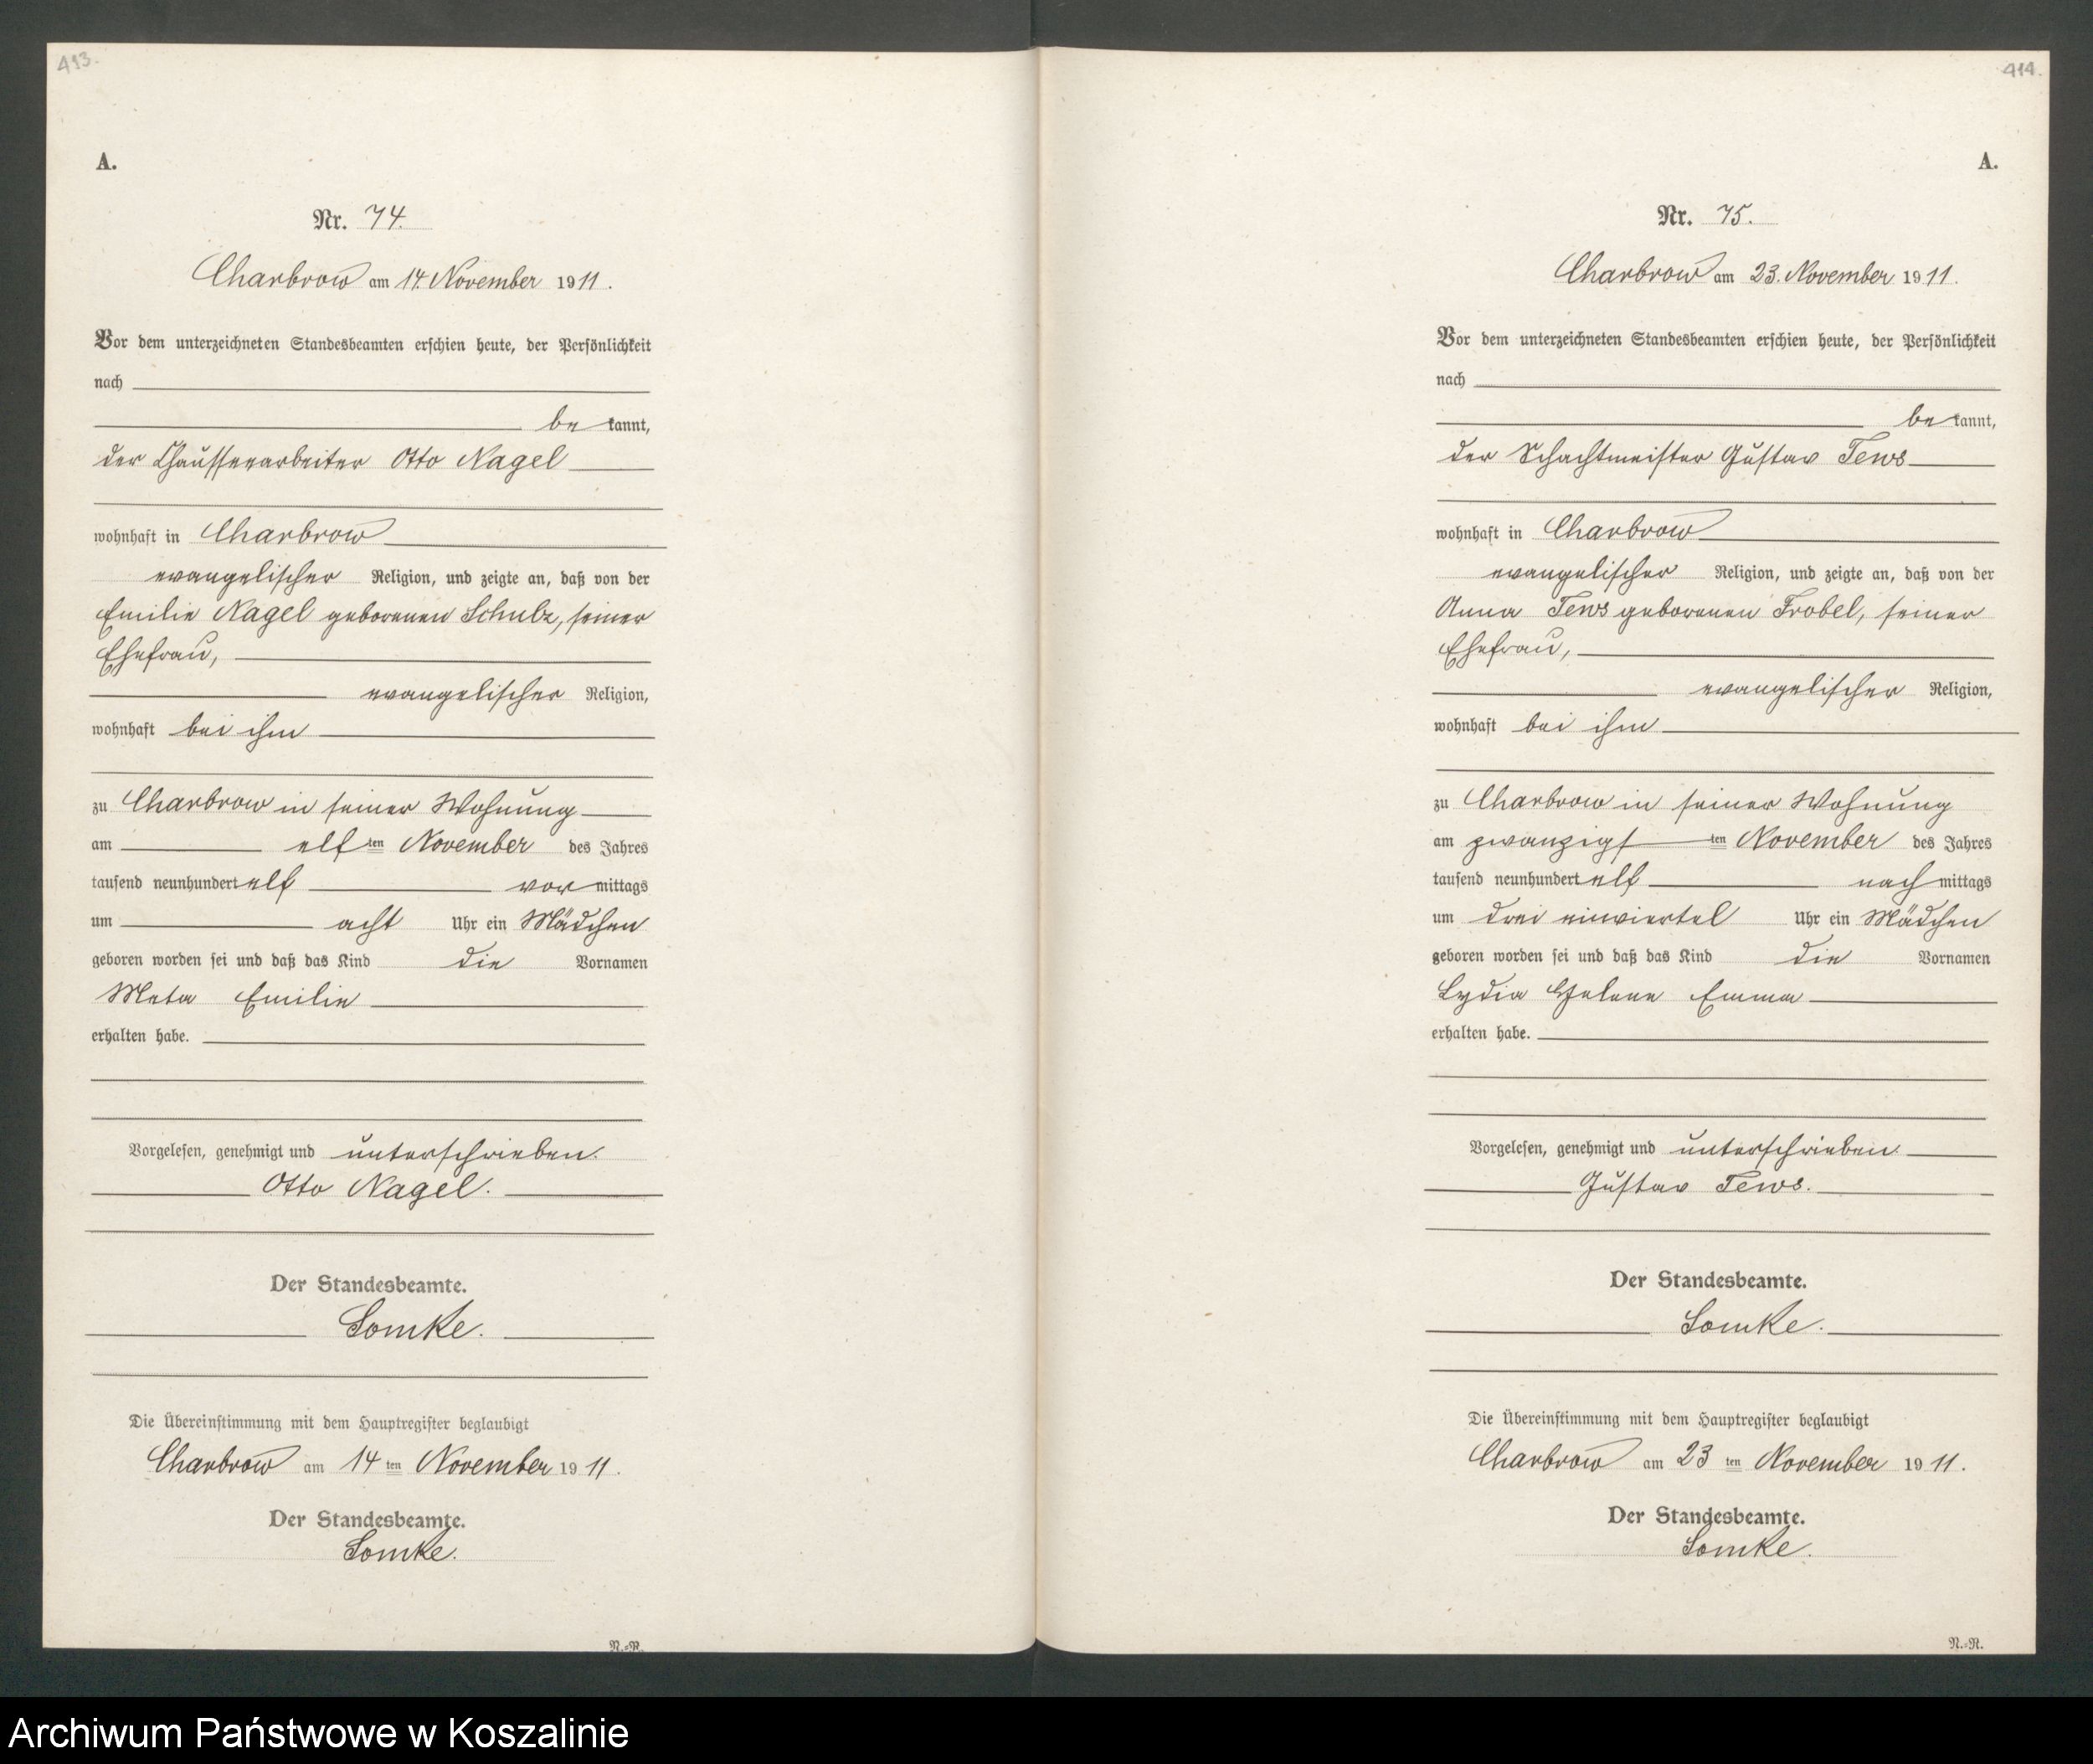 413.
A.
Nr. 74.
Charbrow am 14. November 1911.
Vor dem unterzeichneten Standesbeamten erschien heute, der Persönlichkeit
nach
be kannt,
der Chausseearbeiter Otto Nagel
wohnhaft in Charbrow
evangelischer Religion, und zeigte an, daß von der
Emilie Nagel geborenen Schulz, seiner
Ehefrau,
evangelischer Religion,
wohnhaft bei ihm
zu Charbrow in seiner Wohnung
am elf ten November des Jahres
tausend neunhundert elf vor mittags
um acht Uhr ein Mädchen
geboren worden sei und daß das Kind die Vornamen
Meta Emilie
erhalten habe.
Vorgelesen, genehmigt und unterschrieben.
Otto Nagel.
Der Standesbeamte.
Lomke.
Die Übereinstimmung mit dem Hauptregister beglaubigt
Charbrow am 14 ten November 1911.
Der Standesbeamte.
Lomke.
N.-R.
414.
A.
Nr. 75.
Charbrow am 23. November 1911.
Vor dem unterzeichneten Standesbeamten erschien heute, der Persönlichkeit
nach
be kannt,
der Schachtmeister Gustav Tews
wohnhaft in Charbrow
evangelischer Religion, und zeigte an, daß von der
Anna Tews geborenen Frobel, seiner
Ehefrau,
evangelischer Religion,
wohnhaft bei ihm
zu Charbrow in seiner Wohnung
am zwanzigs ten November des Jahres
tausend neunhundert elf nach mittags
um drei einviertel Uhr ein Mädchen
geboren worden sei und daß das Kind die Vornamen
Lydia Helene Emma
erhalten habe.
Vorgelesen, genehmigt und unterschrieben.
Gustav Tews.
Der Standesbeamte.
Lomke.
Die Übereinstimmung mit dem Hauptregister beglaubigt
Charbrow am 23 ten November 1911.
Der Standesbeamte.
Lomke.
N.-R.
Archiwum Państwowe w Koszalinie